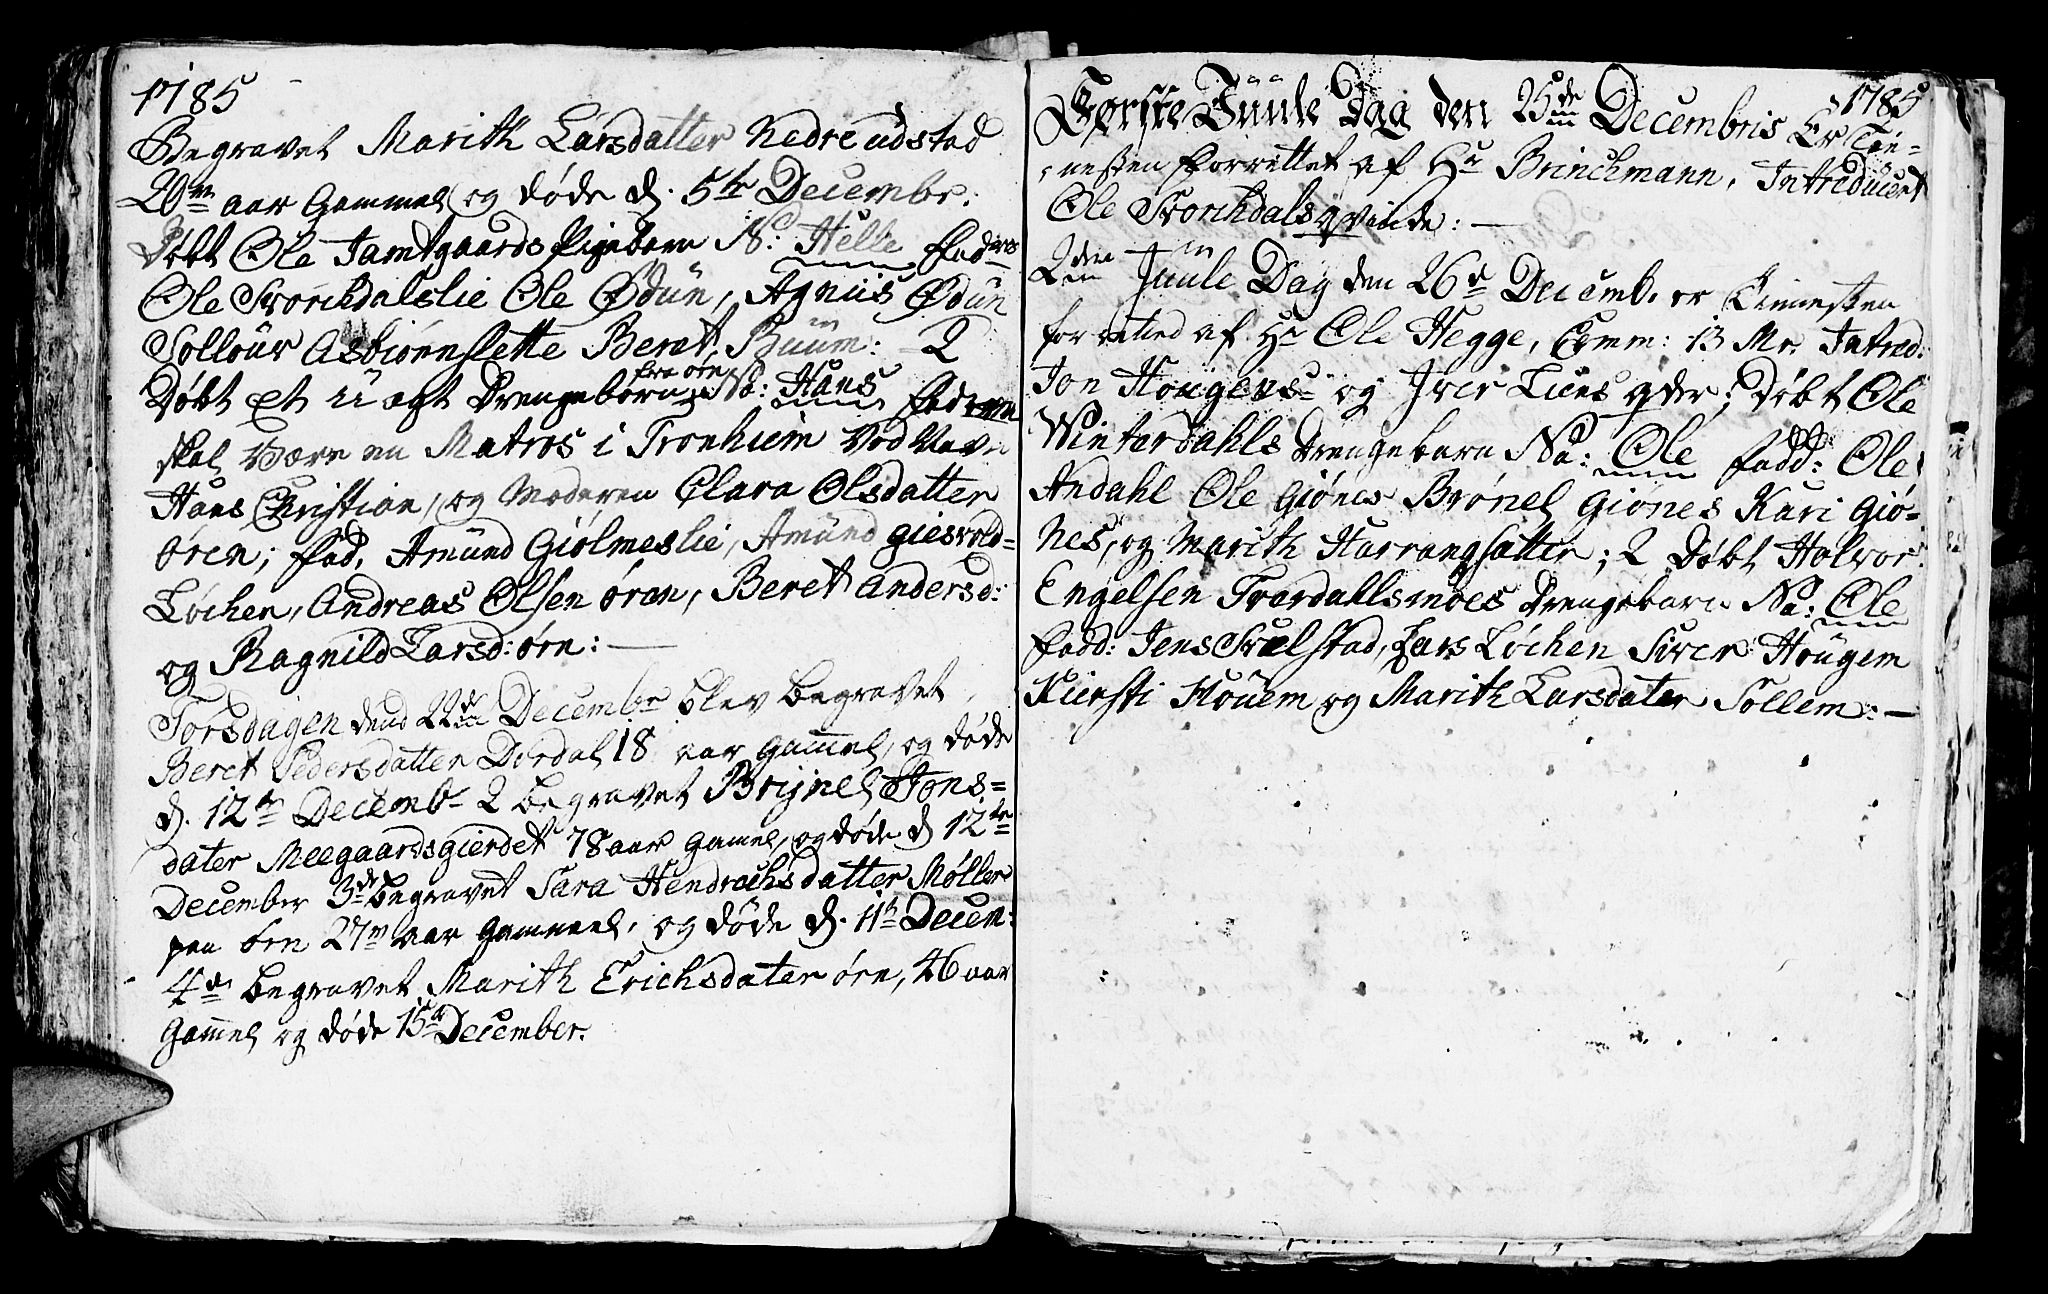 1785
Begravet Marith Larsdatter Nedre udstad
20 aar Gammel og døde d. 5te Decembr:
Døbt Ole Jamtgaards Pigebarn N: Helle Fadderne
Ole Svorchdalslie Ole Ødün, Agnus Ødün
Solloür Asbiørnslette Beret Buüm: 2
Døbt et Uægt Drengebørn fra ørn Na: Hans Faderen
skal Være en Matros i Tronhiem Ved Navn
Hans Christian, og Moderen Clara Olsdatter
øren; fad, Amund Giølmeslie, Amünd giesvold-
Løchen, Andreas Olsen øren, Beret Andersd:
og Ragnild Larsd: ørn: —
Torsdagen dend 22de Decembr blev begravet
Beret Pedersdatter Dordal 18 aar gammel, og døde
d. 12te Decemb- 2 begravet Brynel Jons=
dater Meegaardsgierdet 78 aar gamel, og døde d 12te
December 3de begravet Sara Hendrichsdatter Møller
paa ørn 27 aar gammel, og døde d. 11te Decem:
4de begravet Marith Erichsdater ørn, 46 aar
gammel og døde 15de December.
1785
Første Juule Dag den 25de Decembris Er Tie-
nesten forrettet af Hr Brinchmann, Introduceret
Ole Svorchdals qvinde: —
2den Juule Dag den 26de Decemb. er Tienesten
forretted af Hr Ole Hegge, Comm: 13 Mr. Introd:
Jon Hougens og Iver Liens qder; Døbt Ole
Winterdahls Drengebarn Na: Ole fadd: Ole
Andahl Ole Giønes Brønel Giønes Kari Giø-
nes, og Marith Harrangsatter; 2 Døbt Halvor
Engelsen Trærdahlsmoes Drengebarn Na: Ole
fadd: Jens Svelstad, Lars Løchen Siver Hougem
Kiersti Houem og Marith Larsdater Sollem: —